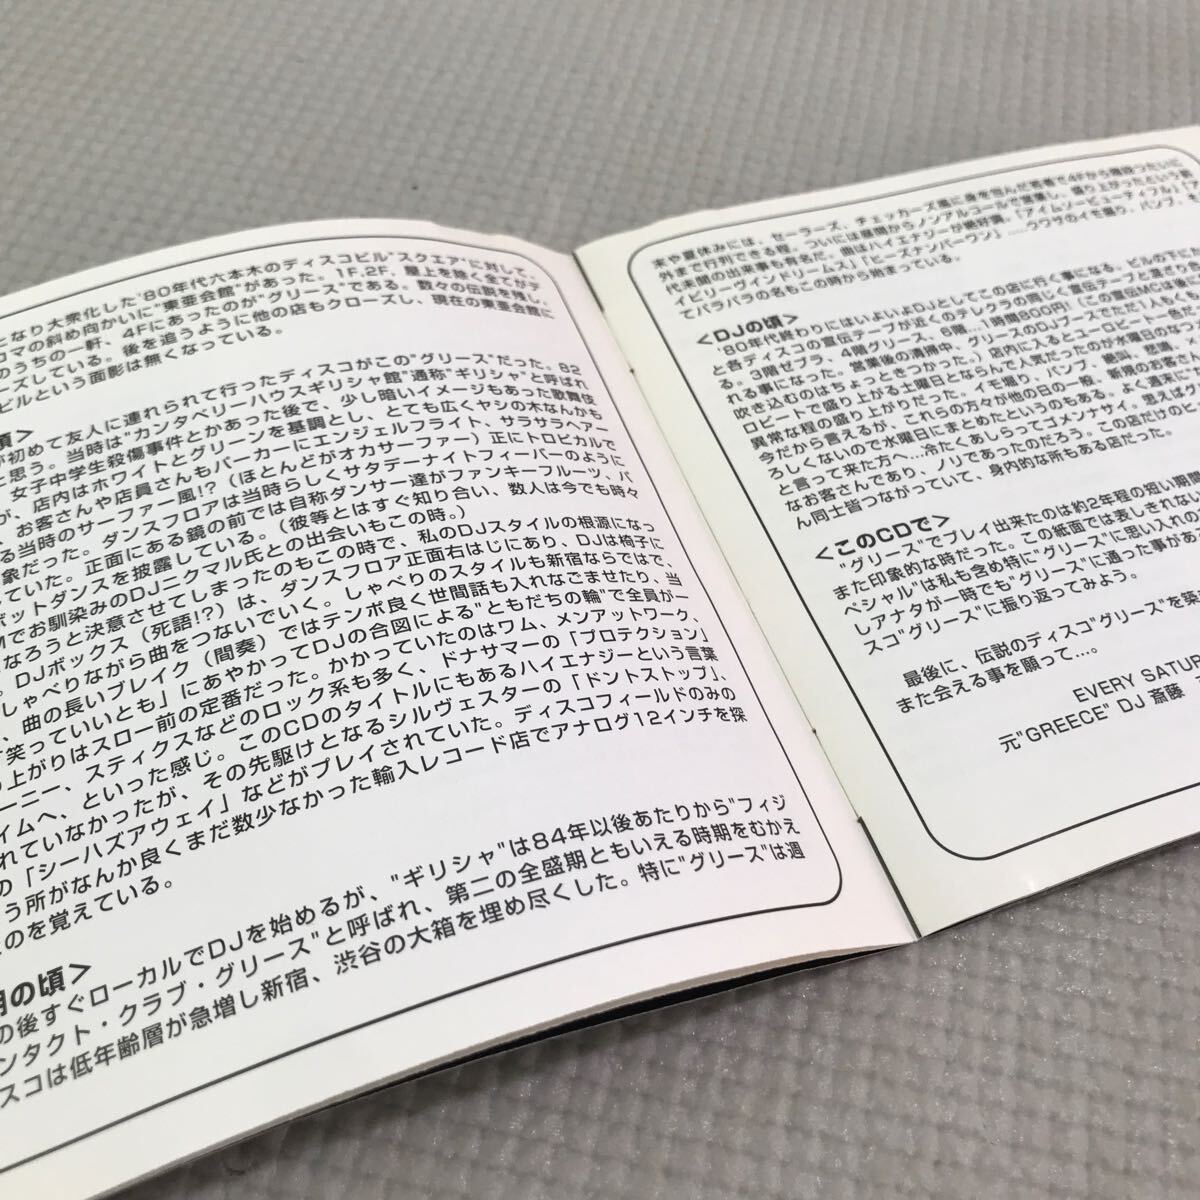 となり大衆化した'80年代六本木のディスコビル"スクエア"に対して、
コマの斜め向かいに"東亜会館"があった。1F.2F、屋上を除く全てがデ
のうちの一軒、4Fにあったのが"グリース"である。数々の伝説を残し、
ーズしている。後を追うように他の店もクローズし、現在の東亜会館に
ビルという面影は無くなっている。
頃>
が初めて友人に連れられて行ったディスコがこの"グリース"だった。82
と思う。当時は"カンタベリーハウスギリシャ館"通称"ギリシャ"と呼ばれ
、女子中学生殺傷事件とかあった後で、少し暗いイメージもあった歌舞伎
が、店内はホワイトとグリーンを基調とし、とても広くヤシの木なんかも
、お客さんや店員さんもパーカーにエンジェルフライト、サラサラヘアー
る当時のサーファー風!?(ほとんどがオカサーファー)正にトロピカルで
象だった。ダンスフロアは当時らしくサタデーナイトフィーバーのように
ていた。正面にある鏡の前では自称ダンサー達がファンキーフルーツ、バ
ボットダンスを披露している。(彼等とはすぐ知り合い、数人は今でも時々
Mでお馴染みのDJニクマル氏との出会いもこの時。)
なろうと決意させてしまったのもこの時で、私のDJスタイルの根源になっ
。DJボックス(死語!?)は、ダンスフロア正面右はじにあり、DJは椅子に
しゃべりながら曲をつないでいく。しゃべりのスタイルも新宿ならではで、
、曲の長いブレイク(間奏)ではテンポ良く世間話も入れなごませたり、当
て笑っていいとも」にあやかってDJの合図による"ともだちの輪"で全員が一
り上がりはスロー前の定番だった。かかっていたのはワム、メンアットワーク、
ーニー、スティクスなどのロック系も多く、ドナサマーの「プロテクション」
イムへ、といった感じ。このCDのタイトルにもあるハイエナジーという言葉
れていなかったが、その先駆けとなるシルヴェスターの「ドントストップ」、
の「シーハズアウェイ」などがプレイされていた。ディスコフィールドのみの
う所がなんか良くまだ数少なかった輸入レコード店でアナログ12インチを探
たのを覚えている。
期の頃>
の後すぐローカルでDJを始めるが、"ギリシャ"は84年以後あたりから"フィジ
ンタクト・クラブ・グリース"と呼ばれ、第二の全盛期ともいえる時期をむかえ
スコは低年齢層が急増し新宿、渋谷の大箱を埋め尽くした。特に"グリース"は週
末や夏休みには、セーラーズ、チェッカーズ風に身を包んだ若者で4Fから階段づたいに
外まで行列できる程。ついには昼間からノンアルコールで営業し、盛り上がったという前
代未聞の出来事も有名だ。曲はハイエナジーが絶好調、「アイムソービューティフル」「オ
イビリーヴインドリームス」「ヒーズナンバーワン」……ウワサのイモ掘り、バンプ、そし
てパラパラの名もこの時から始まっている。
<DJの頃>
'80年代終わりにはいよいよDJとしてこの店に行く事になる。ビルの下に
と各ディスコの宣伝テープが近くのテレクラの同じく宣伝テープと混ざり
る。3階ゼブラ、4階グリース、6階…1時間800円!(この宣伝MCは後で
れる事になった。営業後の清掃中、グリースのDJブースでただ1人もくも
吹き込むのはちょっときつかった。)店内に入るとユーロビート一色だ
ロビートで盛り上がる土曜日とならんで人気だったのが水曜日のなつ
異常な程の盛り上がりだった。イモ掘り、バンプ、絶叫、悲鳴、
今だから言えるが、これらの方々が他の日の一般、新規のお客さ
ろしくないので水曜日にまとめたというのもある。よく週末に
と言って来た方へ…冷たくあしらってゴメンナサイ。思えば
なお客さんであり、ノリであったのだろう。この店だけの
ん同士皆つながっていて、身内的な所もある店だった。
<このCDで>
"グリース"でプレイ出来たのは約2年程の短い期間
また印象的な時だった。この紙面では表しきれない
ペシャル"は私も含め特に"グリース"に思い入れの
しアナタが一時でも"グリース"に通った事があ
スコ"グリース"に振り返ってみよう。
最後に、伝説のディスコ"グリース"を築
また会える事を願って…。
EVERY SATUR
元"GREECE" DJ 斎藤